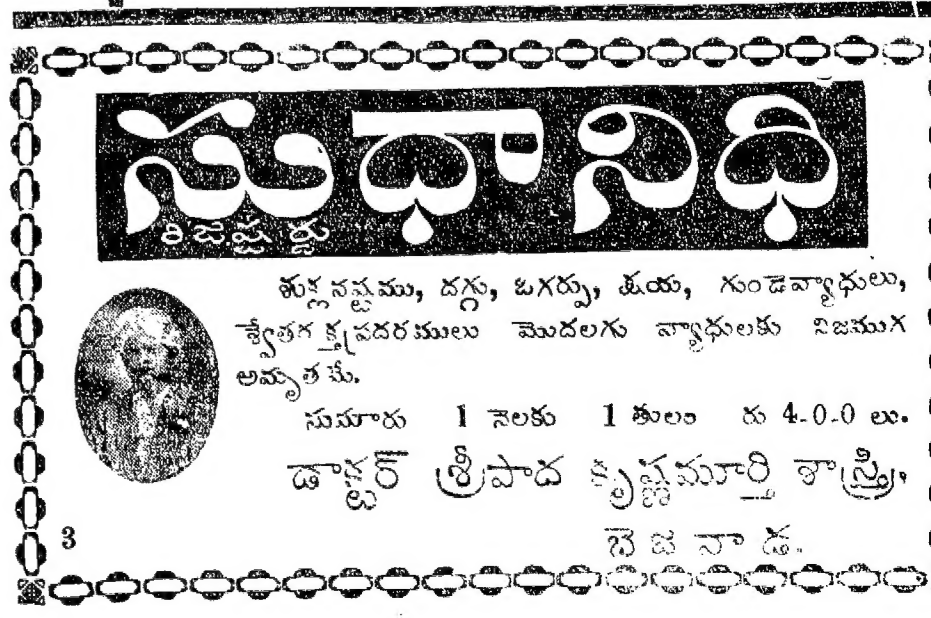 సుధానిధి
రిజిష్టర్డు
శుక్లనష్టము, దగ్గు, ఒగర్పు, క్షయ, గుండెవ్యాధులు,
శ్వేతరక్తప్రదరములు మొదలగు వ్యాధులకు నిజముగ
అమృతమే.
సుమారు 1 నెలకు 1 తులం రు 4-0-0 లు.
డాక్టర్ శ్రీపాద కృష్ణమూర్తి శాస్త్రి,
3 బెజవాడ.